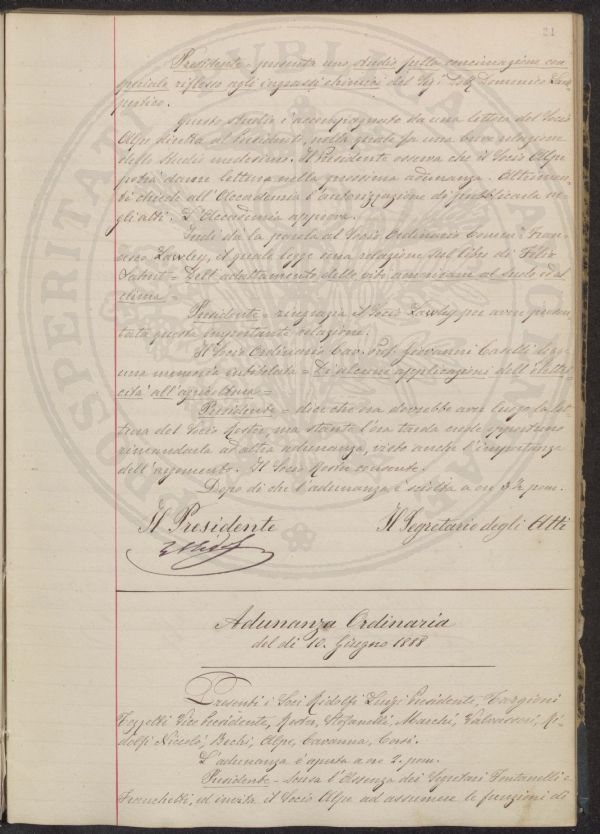 21
Presidente - presenta uno studio sulla concimazione con
speciale riflesso agli ingrassi chimici del Sig. Dott. Domenico
questo studio è accompagnato da una lettera del Socio
Alpe diretta al Presidente, nella quale fa una breve relazione
dello studio medesimo. Il Presidente osserva che il Socio Alpe
potrà darne lettura nella prossima adunanza.
chiede all'Accademia l'autorizzazione di pubblicarla ne
gli atti. L'Accademia approva.
Indi dà la parola al Socio Ordinario Comm. Fran
cesco Lawley, il quale legge una relazione sul libro di Felix
Sahut = Dell'adattamento delle viti americane al suolo ed al
clima.
Presidente - ringrazia il Socio Lawley per aver presen
tata questa importante relazione.
Il Socio Ordinario Cav. prof. Giovanni Caselli legge
una memoria intitolata = Di alcune applicazioni dell'elettri
cità all'agricoltura =
Presidente = dice che ora dovrebbe aver luogo la let
tura del Socio Roster, ma stante l'ora tarda crede opportuno
rimandarla ad altra adunanza, visto anche l'importanza
dell'argomento. Il Socio Roster consente.
Dopo di che l'adunanza è sciolta a ore 3½ pom.
Il Presidente
Il Segretario degli Atti
Adunanza Ordinaria
del dì 10. Giugno 1888
Presenti i Soci Ridolfi Luigi Presidente, Targioni
Tozzetti Vice Presidente, Roster, Stefanelli, Marchi, Valvassori, Ri
dolfi Niccolò, Bechi, Alpe, Cavanna,
L'adunanza è aperta a ore 2. pom.
Presidente - Scusa l'assenza dei Segretari Fontanelli e
Franchetti, ed invita il Socio Alpe ad assumere le funzioni di